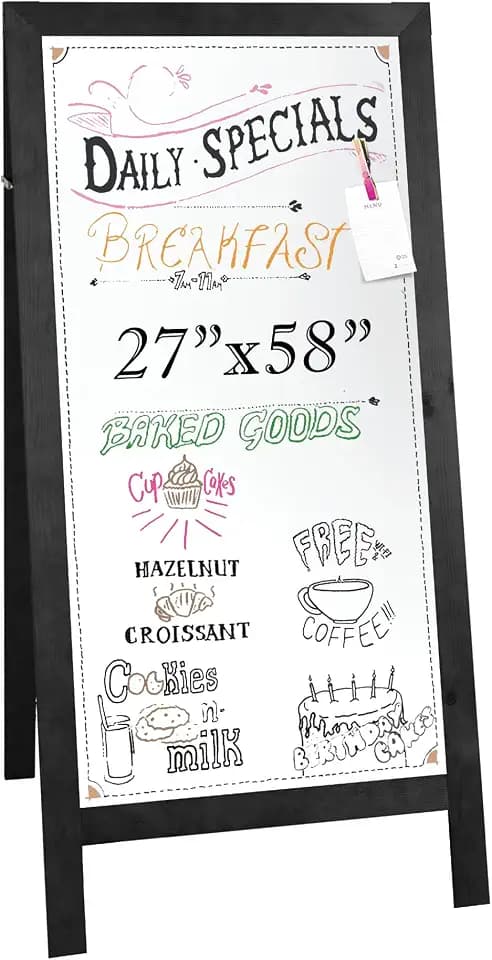 DAILY · SPECIALS
MENU
BREAKFAST
7AM-11AM
27”x58”
BAKED GOODS
Cup Cakes
HAZELNUT
CROISSANT
FREE
COFFEE!!!
Cookies
-n-
milk
BERTHDAY
CAKES